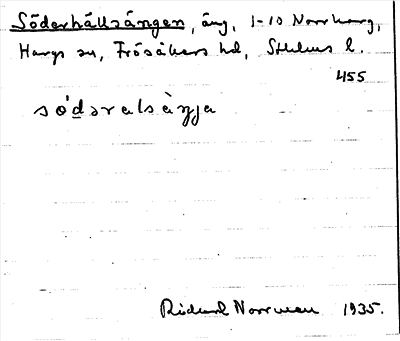 Söderhällsängen, äng, 1-10 Norrharg,
Hargs sn, Frösåkers hd, Sthlms l.
455
sö́dəralsàŋja
Rickard Norrman 1935.